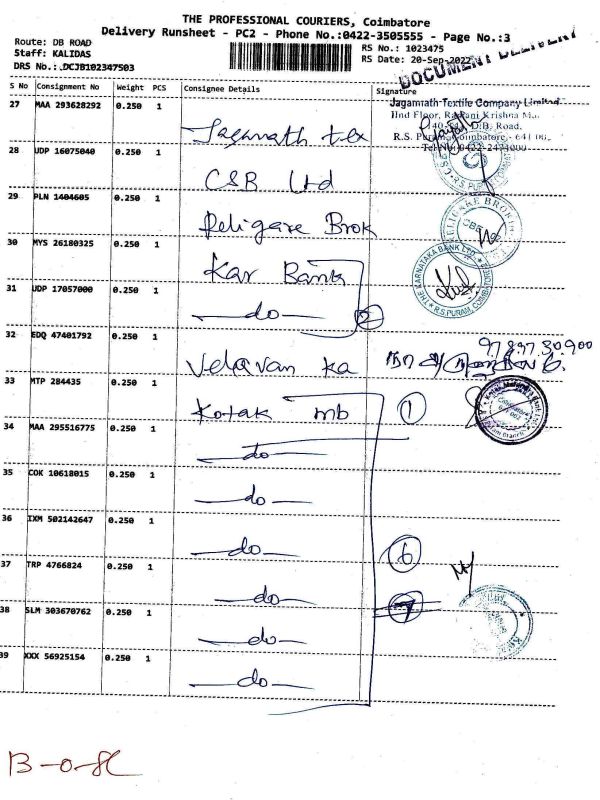 THE PROFESSIONAL COURIERS, Coimbatore
Delivery Runsheet - PC2 - Phone No.:0422-3505555 - Page No.:3
Route: DB ROAD
Staff: KALIDAS
DRS No.: DCJB102347503
RS No.: 1023475
RS Date: 20-Sep-2022
DOCUMENT DELIVERY
S No Consignment No Weight PCS Consignee Details Signature
27 MAA 293628292 0.250 1 Jagannath tex
Jagannath Textile Company Limited
IInd Floor,
D.B. Road,
28 UDP 16075040 0.250 1 CSB Ltd
29 PLN 1404605 0.250 1 Religare Brok
30 MYS 26180325 0.250 1 Kar Bank
THE KARNATAKA BANK LTD.
R.S.PURAM, COIMBATORE
31 UDP 17057000 0.250 1 do 2
32 EDQ 47401792 0.250 1 Velavan ka
33 MTP 284435 0.250 1 Kotak mb 1
34 MAA 295516775 0.250 1 do
35 COK 10618015 0.250 1 do
36 IXM 502142647 0.250 1 do 6
37 TRP 4766824 0.250 1 do
38 SLM 303670762 0.250 1 do 7
39 XXX 56925154 0.250 1 do